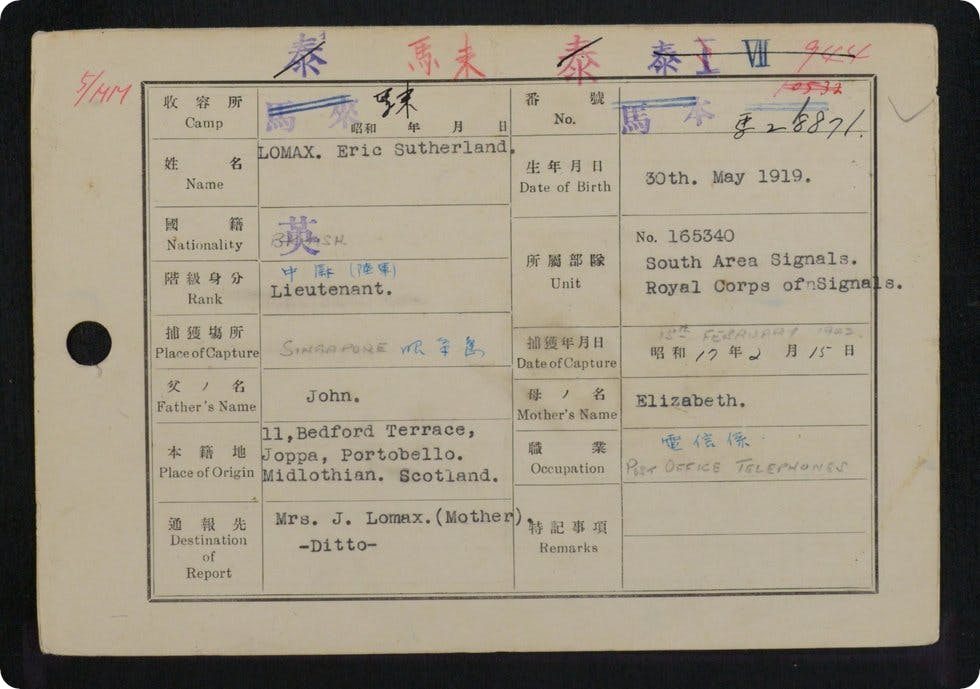 泰 馬来 泰 泰 I VII 944
5/MM
10532
收容所 馬來 馬来
Camp
昭和 年 月 日
番號 馬本 馬 2 8871.
No.
姓名 LOMAX. Eric Sutherland.
Name
生年月日 30th. May 1919.
Date of Birth
國籍 英
Nationality BRITISH
階級身分 中尉 (陸軍)
Rank Lieutenant.
所屬部隊 No. 165340
Unit South Area Signals.
Royal Corps of Signals.
捕獲場所 SINGAPORE 昭南島
Place of Capture
捕獲年月日 15th FEBRUARY 1942
Date of Capture 昭和 17 年 2 月 15 日
父ノ名 John.
Father's Name
母ノ名 Elizabeth.
Mother's Name
本籍地 11,Bedford Terrace,
Place of Origin Joppa, Portobello.
Midlothian. Scotland.
職業 電信係
Occupation POST OFFICE TELEPHONES
通報先 Mrs. J. Lomax.(Mother).
Destination -Ditto-
of
Report
特記事項
Remarks